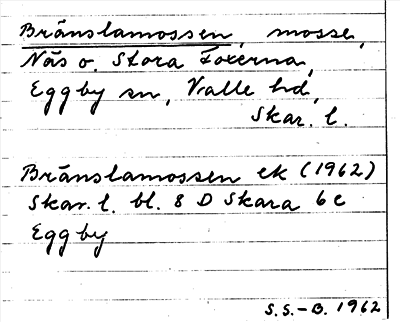 Bränslamossen, mosse,
Näs o. Stora Foxerna,
Eggby sn, Valle hd,
Skar. l.
Bränslamossen ek (1962)
Skar. l. bl. 8 D Skara 6 c
Eggby
S.S.-B. 1962